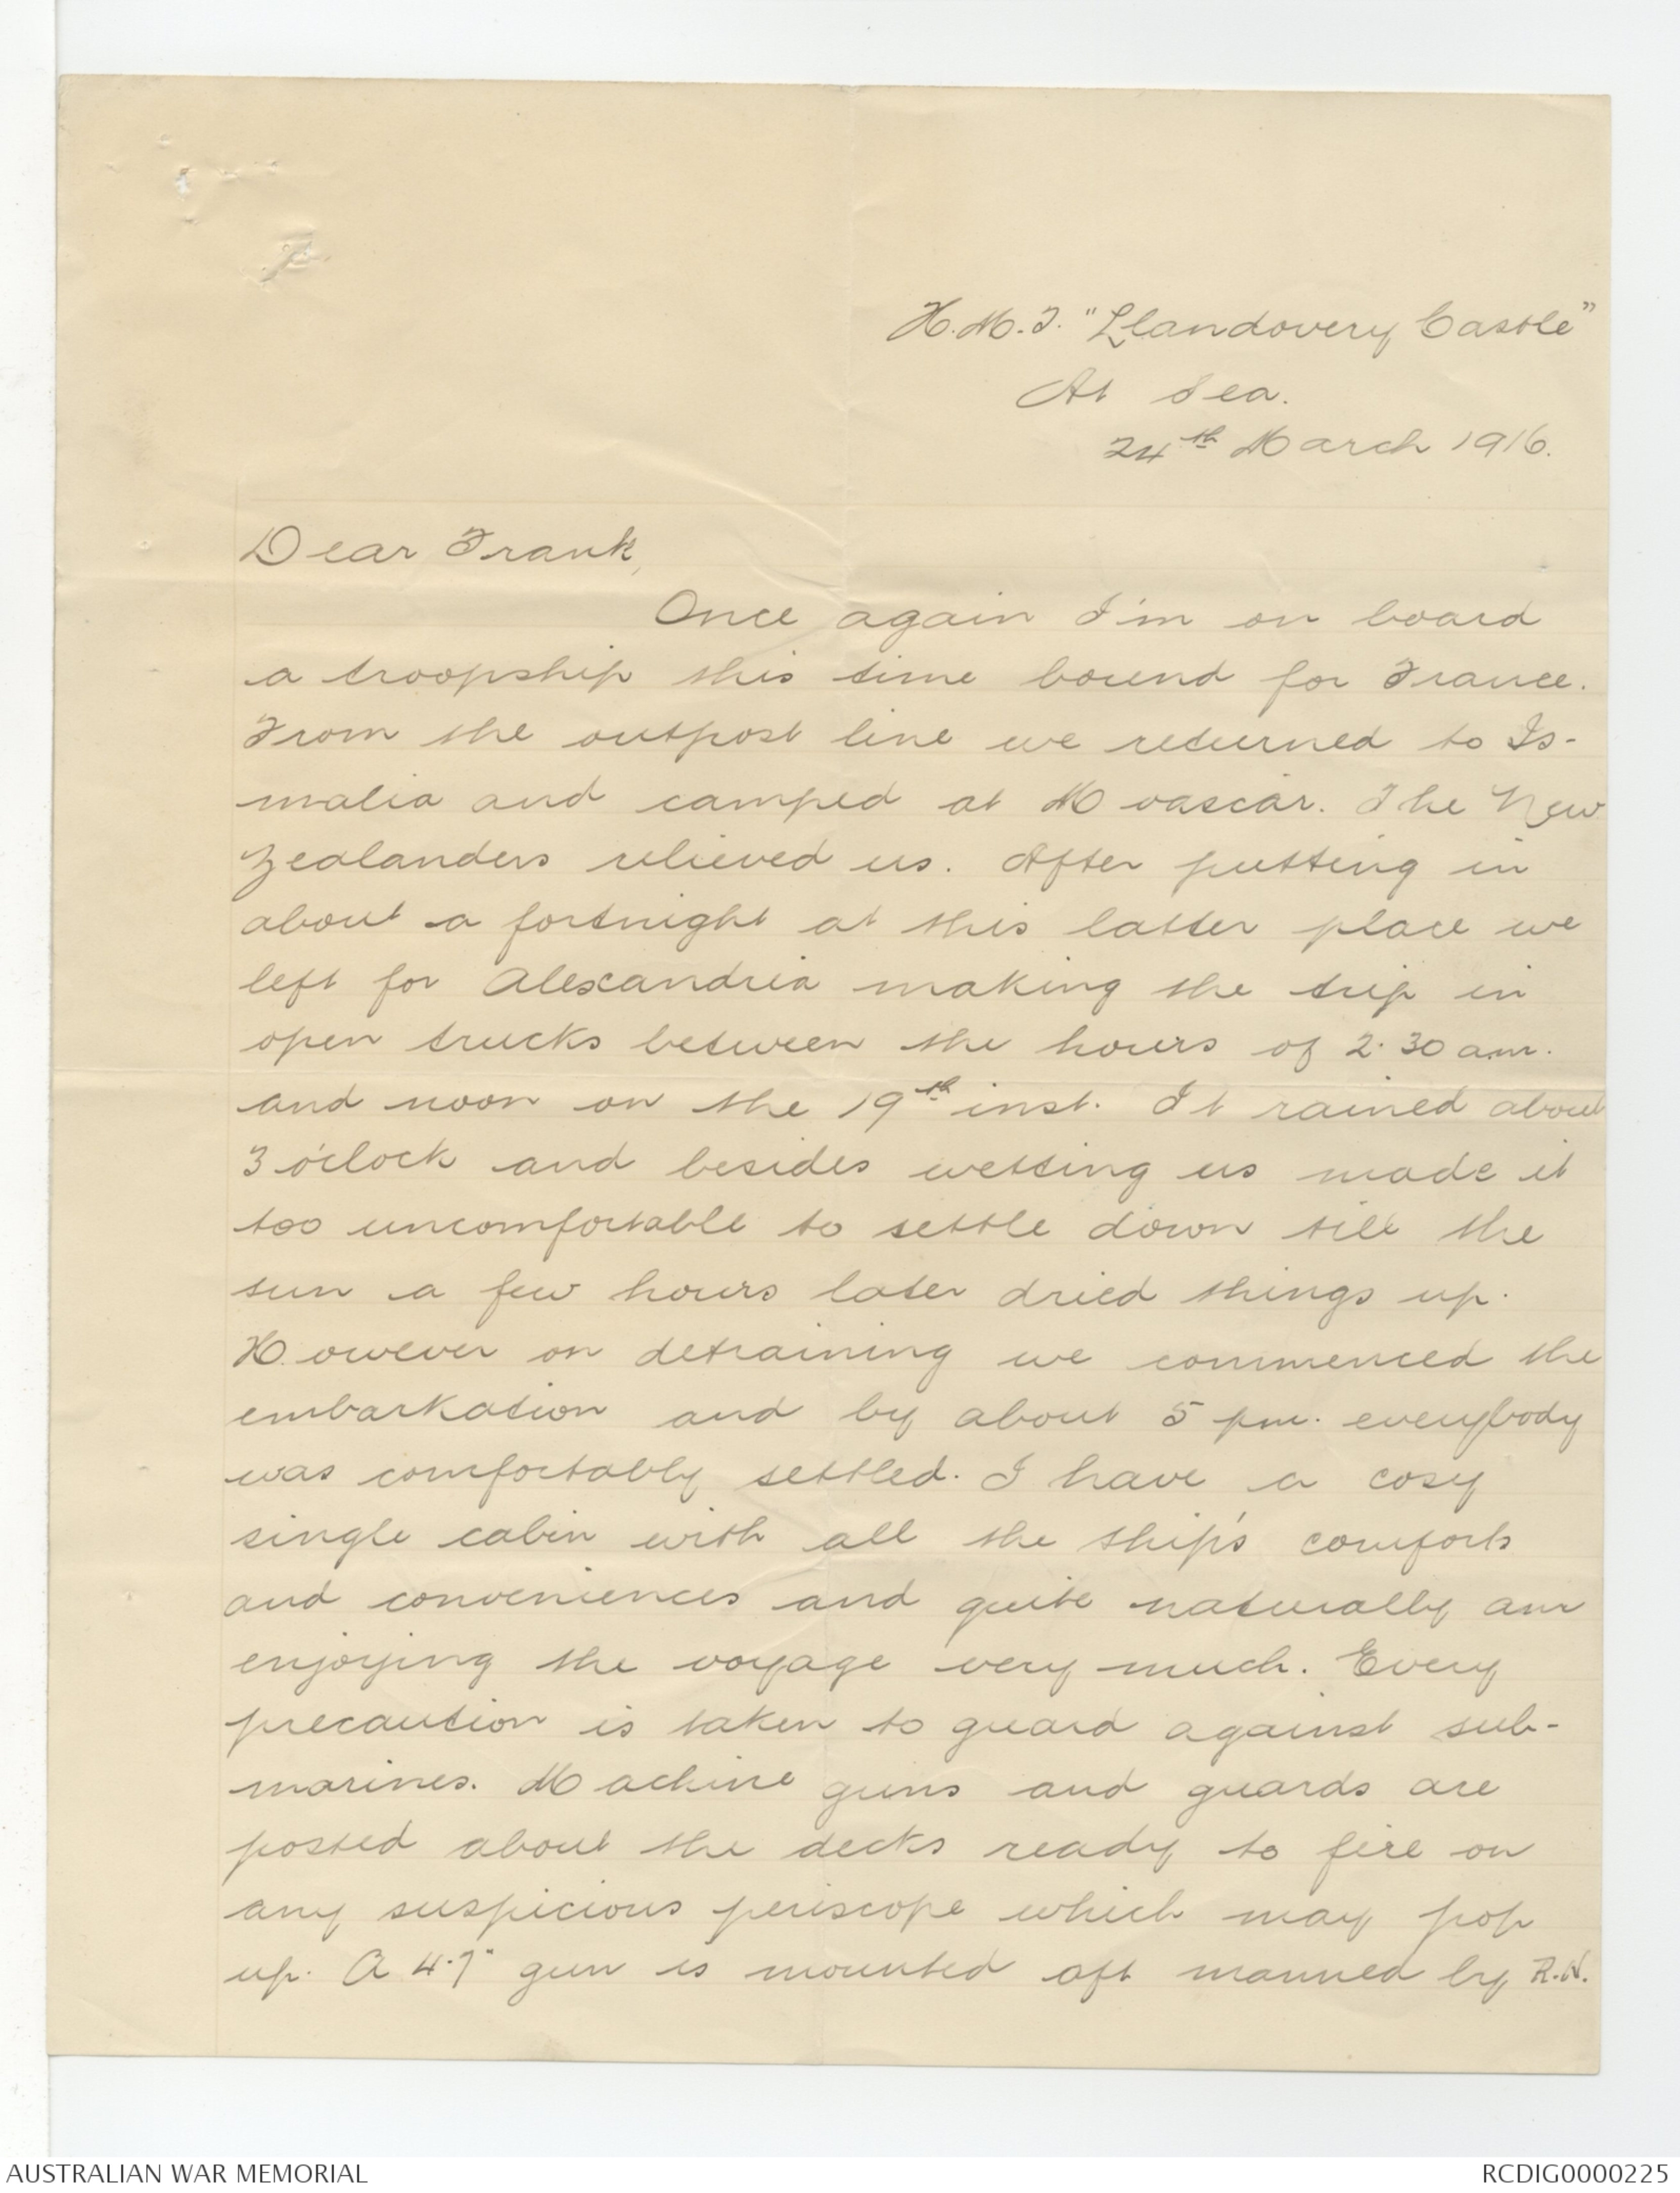 H.M.T. "Llandovery Castle"
At Sea.
24th March 1916.
Dear Frank,
Once again I'm on board
a troopship this time bound for France.
From the outpost line we returned to Is-
malia and camped at Moascar. The New
Zealanders relieved us. After putting in
about a fortnight at this latter place we
left for Alexandria making the trip in
open trucks between the hours of 2.30 a.m.
and noon on the 19th inst. It rained about
3 o'clock and besides wetting us made it
too uncomfortable to settle down till the
sun a few hours later dried things up.
However on detraining we commenced the
embarkation and by about 5 pm. everybody
was comfortably settled. I have a cosy
single cabin with all the ship's comforts
and conveniences and quite naturally am
enjoying the voyage very much. Every
precaution is taken to guard against sub-
marines. Machine guns and guards are
posted about the decks ready to fire on
any suspicious periscope which may pop
up. A 4.7" gun is mounted aft manned by R.N.
AUSTRALIAN WAR MEMORIAL
RCDIG0000225